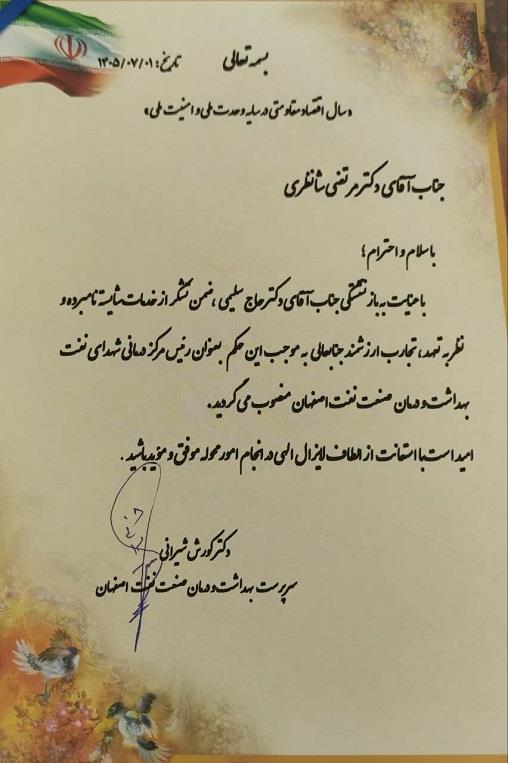 بسمه تعالی
تاریخ: ۱۴۰۵/۰۷/۰۱
«سال اقتصاد مقاومتی در سایه وحدت ملی و امنیت ملی»
جناب آقای دکتر مرتضی شانظری
باسلام و احترام؛
با عنایت به بازنشستگی جناب آقای دکتر حاج سلیمی، ضمن تشکر از خدمات شایسته نامبرده و
نظر به تعهد، تجارب ارزشمند جنابعالی به موجب این حکم بعنوان رئیس مرکز درمانی شهدای نفت
بهداشت و درمان صنعت نفت اصفهان منصوب می گردید.
امید است با استعانت از الطاف لایزال الهی در انجام امور محوله موفق و موید باشید.
دکتر کورش شیرانی
سرپرست بهداشت و درمان صنعت نفت اصفهان